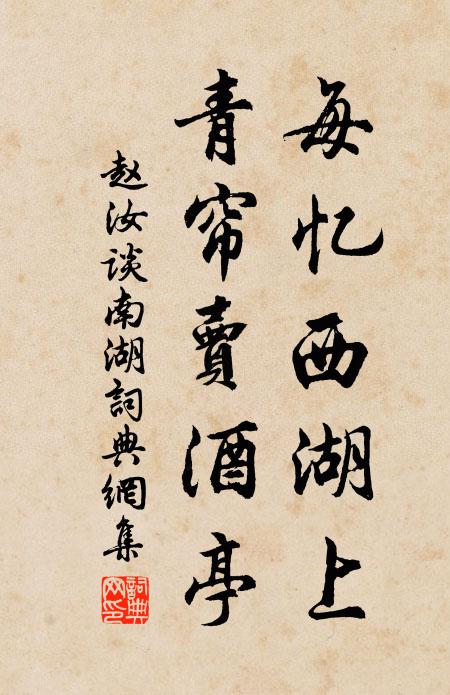 每忆西湖上
青帘賣酒亭
赵汝谈南湖詞典網集
詞典網印